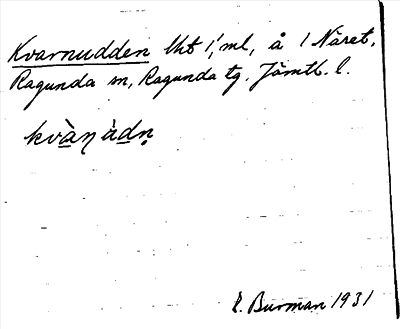 Kvarnudden lht 1, ml, å 1 Näret,
Ragunda sn, Ragunda tg. Jämtl. l.
kvàn̡ àdn̥
E. Burman 1931